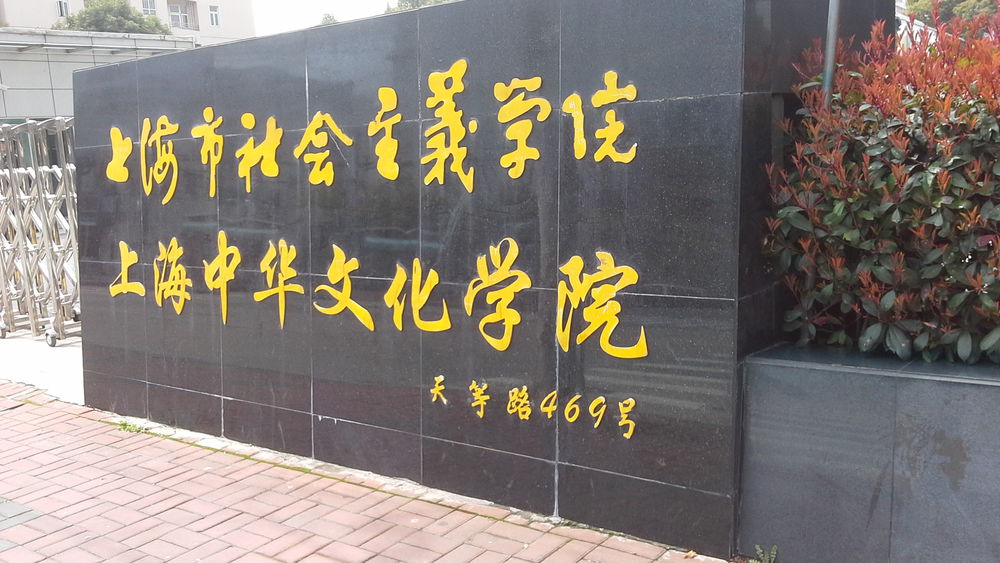 上海市社会主義学院
上海中华文化学院
天等路469号